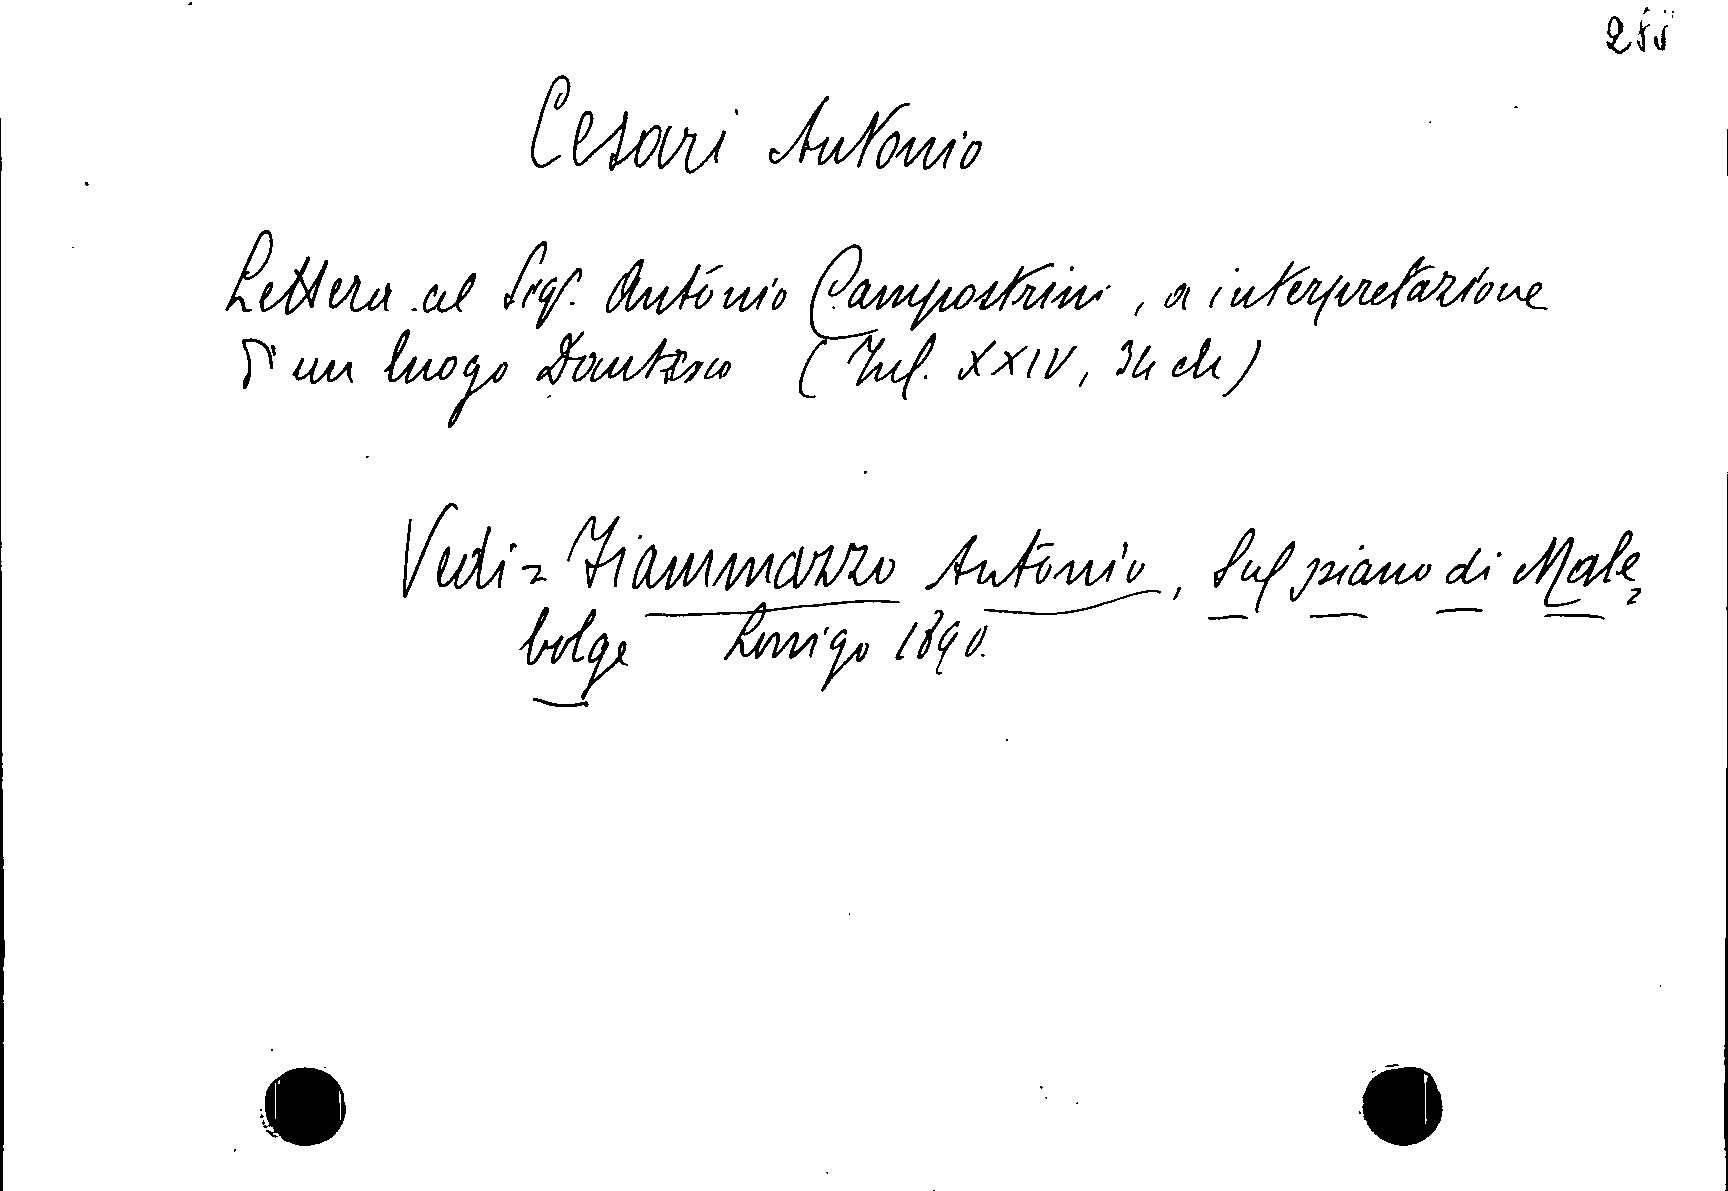 255
Cesari Antonio
Lettera al Sig. Antonio Campostrini, a interpretazione
d'un luogo Dantesco (Inf. XXIV, 34
Vedi = Fiammazzo Antonio, Sul piano di Male=
bolge Lonigo 1890.